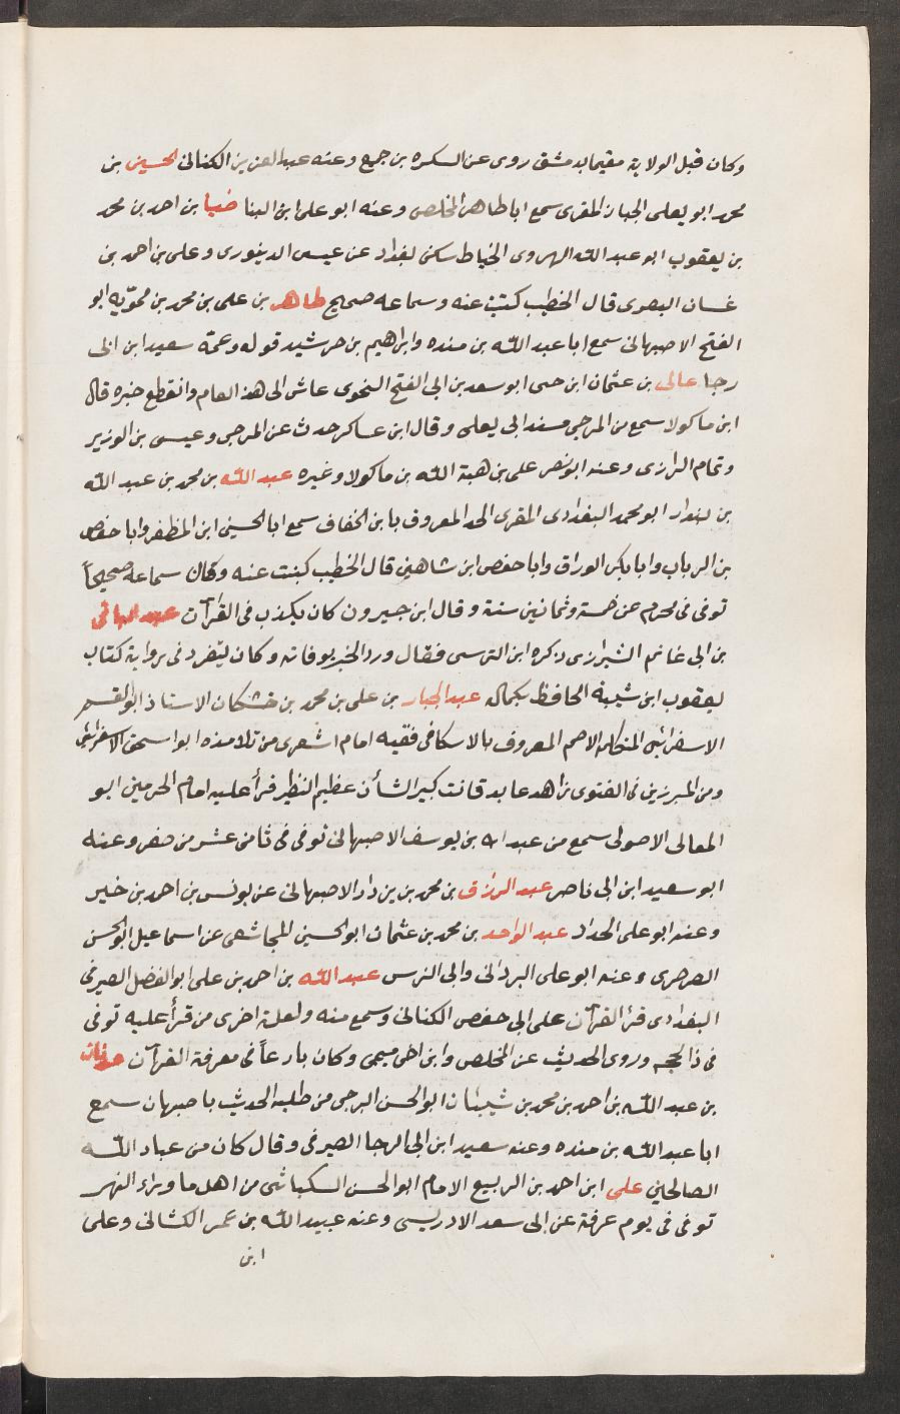 وكان قبل الولاية مقيما بدمشق روى عن السكره بن جميع وعنه عبد العزيز الكنانى الحسين بن
محمد ابو يعلى الجبان المقرى سمع اباطاهر المخلص وعنه ابو على ابن البنا ضيا بن احمد بن محمد
بن يعقوب ابو عبد الله الهروى الخياط سكن بغداد عن عيسى الدينورى وعلى بن احمد بن
غسان البصرى قال الخطيب كتبت عنه وسماعه صحيح طاهر بن على بن محمد بن محمويه ابو
الفتح الاصبهانى سمع ابا عبد الله بن منده وابراهيم بن خرشيد قوله وعمة سعيد ابن ابى
رجا عالى بن عثمان ابن حسى ابو سعد بن ابى الفتح النحوى عاش الى هذ العام وانقطع خبره قال
ابن ماكولا سمع من المرجى مسند ابى يعلى وقال ابن عساكر حدث عن المرجى وعيسى بن الوزير
وتمام الرازى وعنه ابو نصر على بن هبة الله بن ماكولا وغيره عبد الله بن محمد بن عبد الله
بن بندار ابو محمد البغدادى المقرى المعروف بابن الخفاف سمع ابا الحسين ابن المظفر وابا حفص
بن الرباب وابا بكر الوراق وابا حفص ابن شاهين قال الخطيب كبنت عنه وكان سماعه صحيحاً
توفى فى محرم عن خمسة وثمانين سنة وقال ابن جيرون كان يكذب فى القرآت عبد الباقى
بن ابى غانم الشيرازى ذكره ابن النرسى فقال ورد الخبر بوفاته وكان ليتفرد فى برواية كتاب
يعقوب ابن شيبة الحافظ بكماله عبد الجبار بن على بن محمد بن خشكان الاستاذ ابو القسم
الاسفرائنى المتكلم الاصم المعروف بالاسكافى فقيه امام اشعرى من تلامذه ابو اسحق الاسفرائنى
ومن المبرزين فى الفتوى زاهد عابد قانت كبير الشأن عظيم النظير قرأ عليه امام الحرمين ابو
المعالى الاصولى سمع من عبد الله بن يوسف الاصبهانى توفى فى ثامن عشر من صفر وعنه
ابو سعيد ابن ابى ناصر عبد الرزاق بن محمد بن يزداد الاصبهانى عن يونس بن احمد بن خير
وعنه ابو على الحداد عبد الواحد بن محمد بن عثمان ابو الحسين المجاشعى عن اسماعيل ابو الحسن
الصرصرى وعنه ابو على البردانى وابى النرس عبد الله بن احمد بن على ابو الفضل الصيرفى
البغدادى قرأ القرآن على ابى حفص الكنانى وسمع منه ولعلة اخرى من قرأ عليه توفى
فى ذا لحجه وروى الحديث عن المخلص وابن اخى ميمى وكان بارعاً فى معرفة القرآن عدنان
بن عبد الله بن احمد بن محمد بن شيبان ابو الحسن البرجى من طلبه الحديث باصبهان سمع
ابا عبد الله بن منده وعنه سعيد ابن ابى الرجا الصيرفى وقال كان من عباد الله
الصالحين على ابن احمد بن الربيع الامام ابو الحسن السكباثى من اهل ما وراء النهر
توفى فى يوم عرفة عن ابى سعد الادريسى وعنه عبيد الله بن عمر الكشانى وعلى
ابن